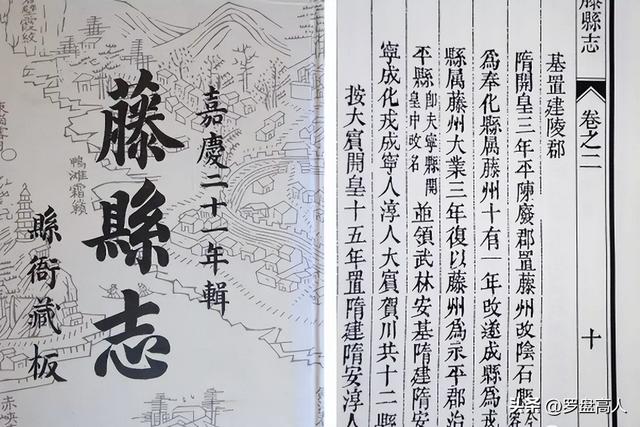 嘉慶二十一年輯
藤縣志
縣衙藏板
鴨灘霜籟
藤縣志
卷之二
十
基置建陵郡
隋開皇三年平陳廢郡置藤州改陰石縣
為奉化縣属藤州十有一年改遂成縣為戎
縣属藤州大業三年復以藤州為永平郡治
平縣即夫寧縣開皇中改名並領武林安基隋建隋安
寧成化戎成寧人淳人大賓賀川共十二縣
按大賓開皇十五年置隋建隋安淳人
头条 @罗盘高人